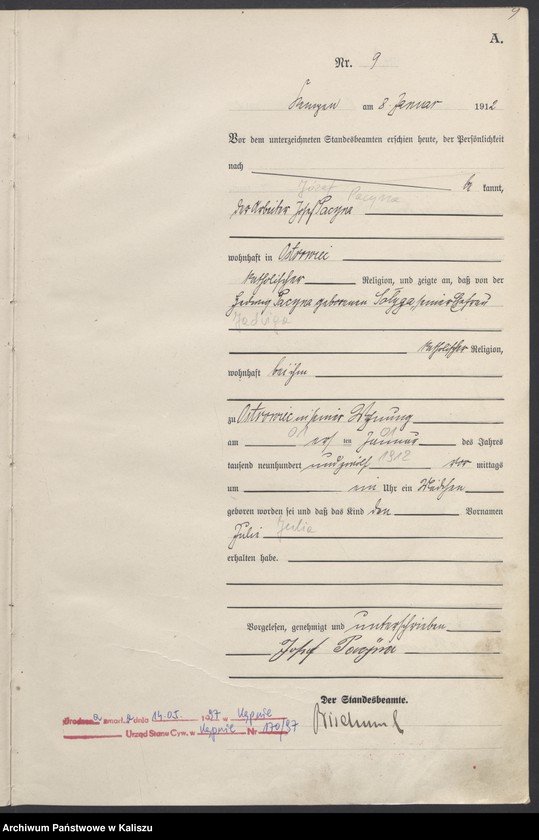 9
A.
Nr. 9
Kempen am 8. Januar 1912
Vor dem unterzeichneten Standesbeamten erschien heute, der Persönlichkeit
nach
be kannt,
Józef Pacyna
der Arbeiter Josef Pacyna
wohnhaft in Ostrowiec
katholischer Religion, und zeigte an, daß von der
Hedwig Pacyna geborenen Sołyga, seiner Ehefrau
Jadwiga
katholischer Religion,
wohnhaft bei ihm
zu Ostrowiec in seiner Wohnung
01 01
am ersten Januar des Jahres
tausend neunhundert und zwölf 1912 vor mittags
um Uhr ein Mädchen
geboren worden sei und daß das Kind den Vornamen
Julie Julia
erhalten habe.
Vorgelesen, genehmigt und unterschrieben
Josef Pacyna
Der Standesbeamte.
Urodzona zmarła dnia 14.05. 1997 w Kępnie
Urząd Stanu Cyw. w Kępnie Nr 170/97
Archiwum Państwowe w Kaliszu